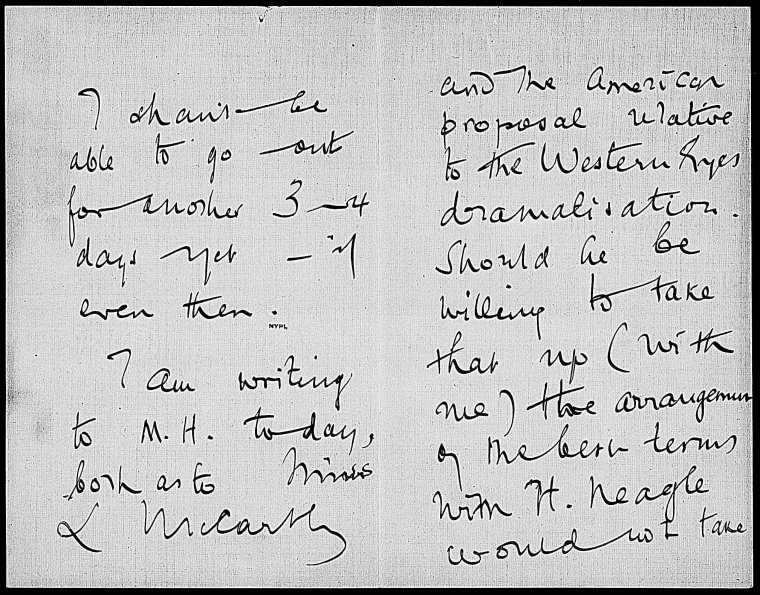 I shan't be
able to go out
for another 3–4
days yet – if
even then.
NYPL
I am writing
to M. H. to-day,
both as to Miss
L McCarthy
and the American
proposal relative
to the Western Eyes
dramatisation.
Should he be
willing to take
that up (with
me) the arrangement
of the best terms
with H. Neagle
would not take